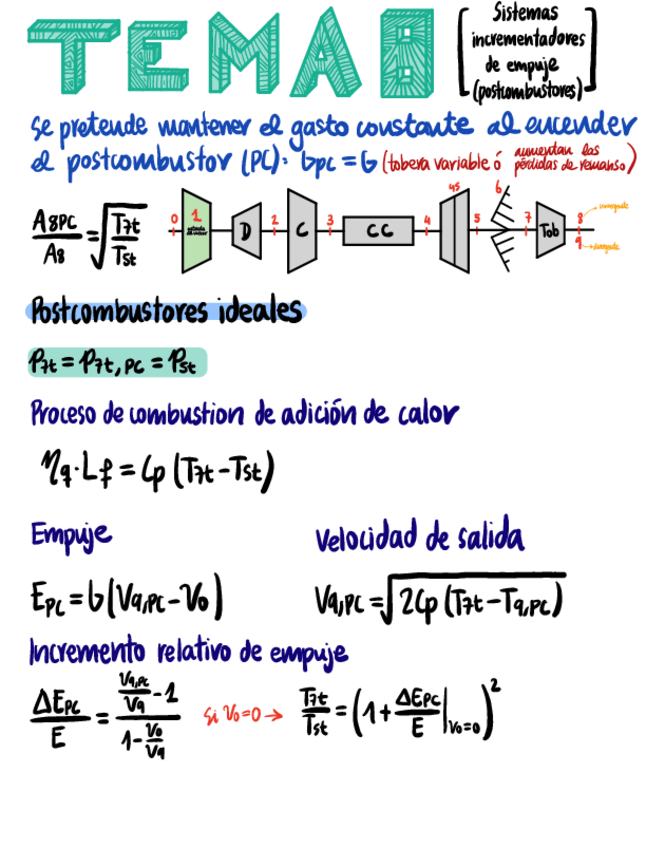 TEMA 8
[Sistemas
incrementadores
de empuje
(postcombustores)]
Se pretende mantener el gasto constante al encender
el postcombustor (PC): Gpc = G (tobera variable ó aumentan las pérdidas de remanso)
A8PC/A8 = √(T7t/T5t)
0 1 D 2 C 3 CC 4 45 5 6 7 Tob 8 → convergente
9 → divergente
Postcombustores ideales
P7t = P7t,PC = P5t
Proceso de combustion de adición de calor
ηq·Lf = Cp (T7t - T5t)
Empuje
Velocidad de salida
EPC = G(V9,PC - V0)
V9,PC = √(2Cp (T7t - T9,PC))
Incremento relativo de empuje
ΔEPC/E = (V9,PC/V9 - 1)/(1 - V0/V9) si V0=0 → T7t/T5t = (1 + ΔEPC/E|V0=0)²